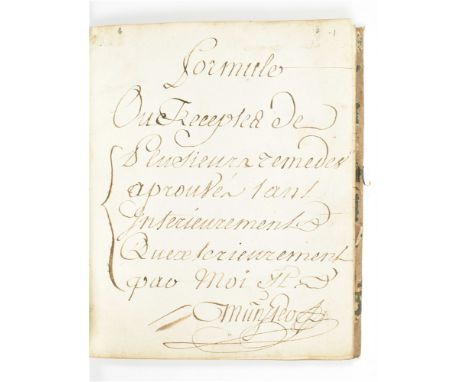 formule
Ou Receptes de
Plusieurs remedes
aprouvés tant
Interieurement
Quexterieurement
par Moi